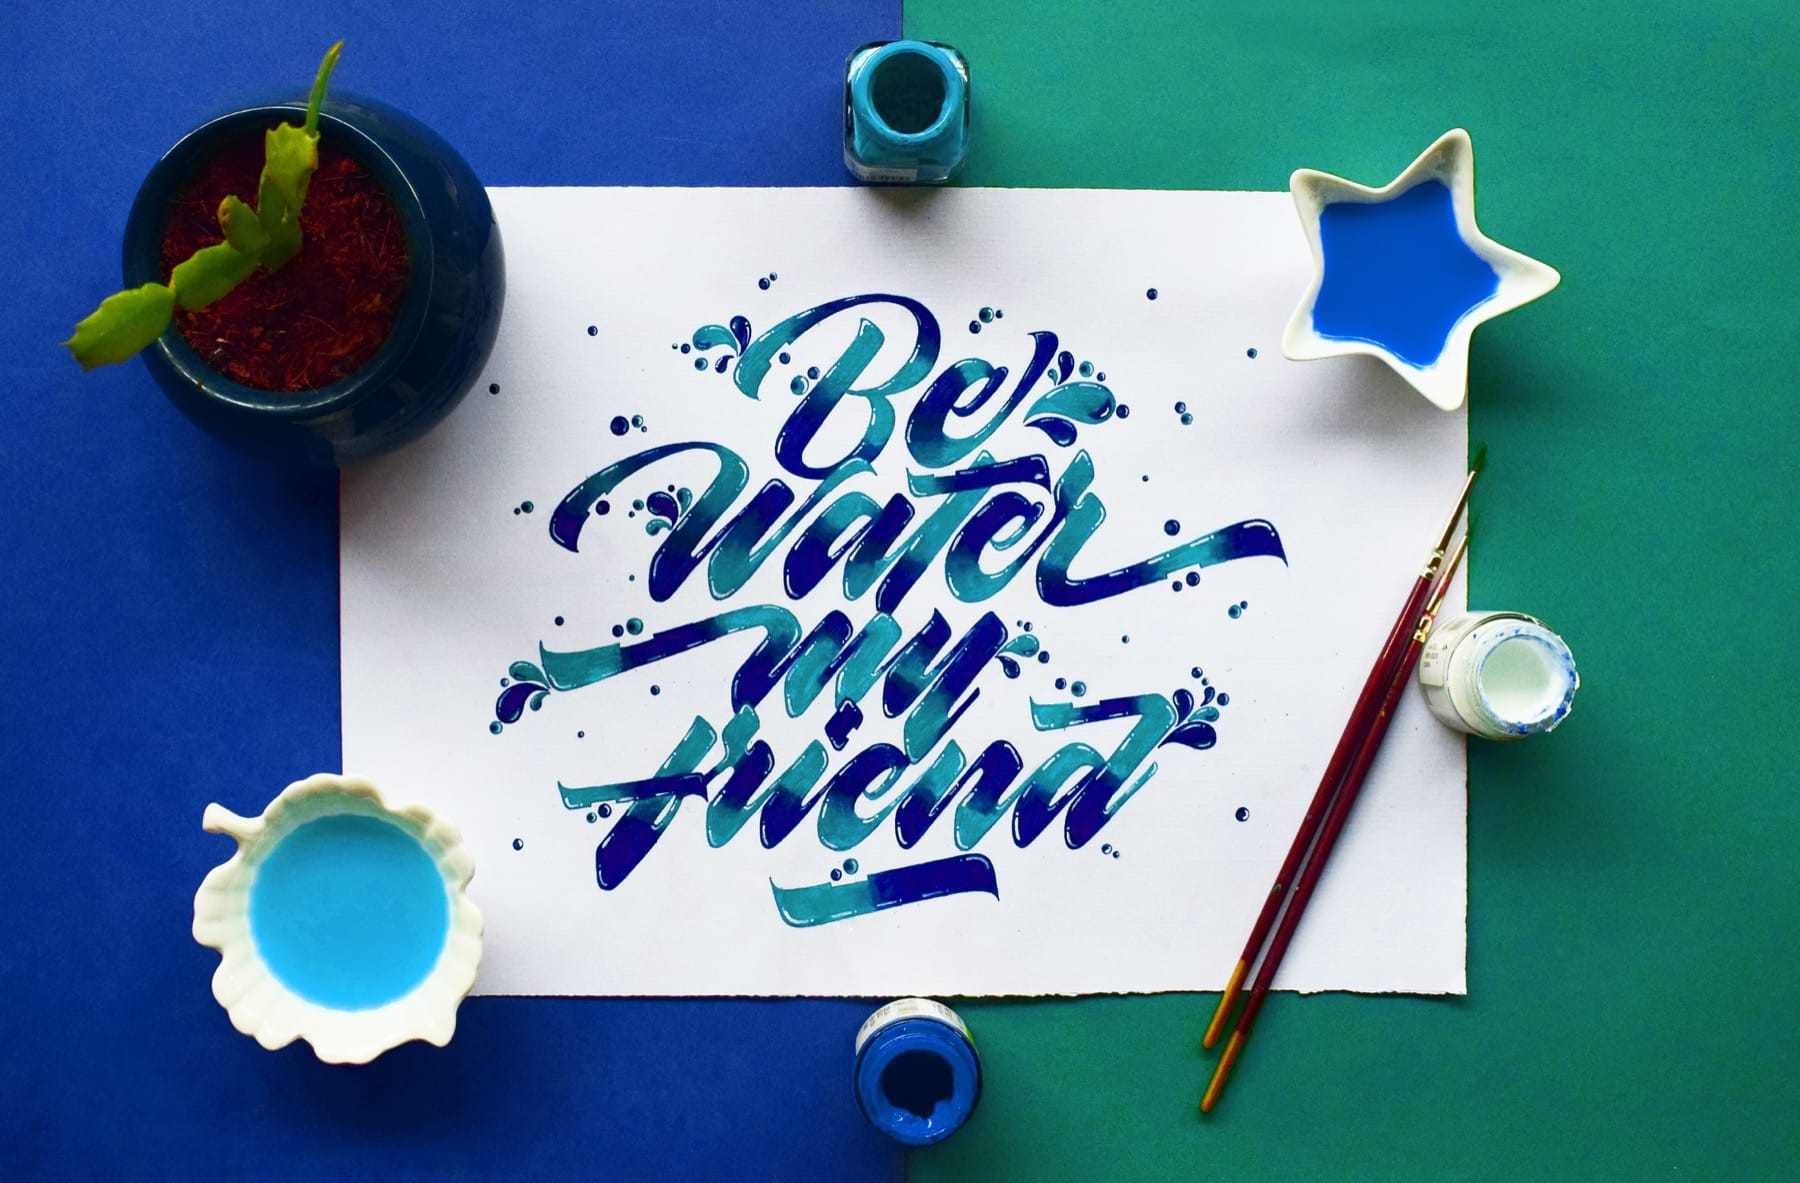 Be
Water
my
friend